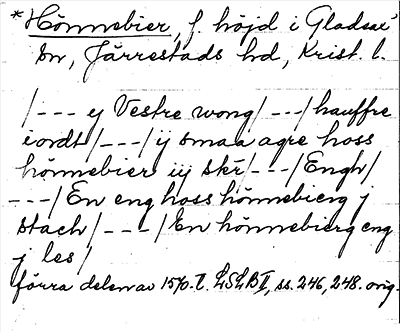 *Hönnebier, f. höjd i Gladsax'
sn, Järrestads hd, Krist. l.
/--- ej Vestre wong/---/hauffre
iordt/---/ij smaa agre hoss
hönnebier iij skr/---/Engh/
---/En eng hoss hönnebierg j
stach/---/En hönnebierg eng
j les/
förra delen av 1570-t. LSLB II, ss. 246, 248. orig.